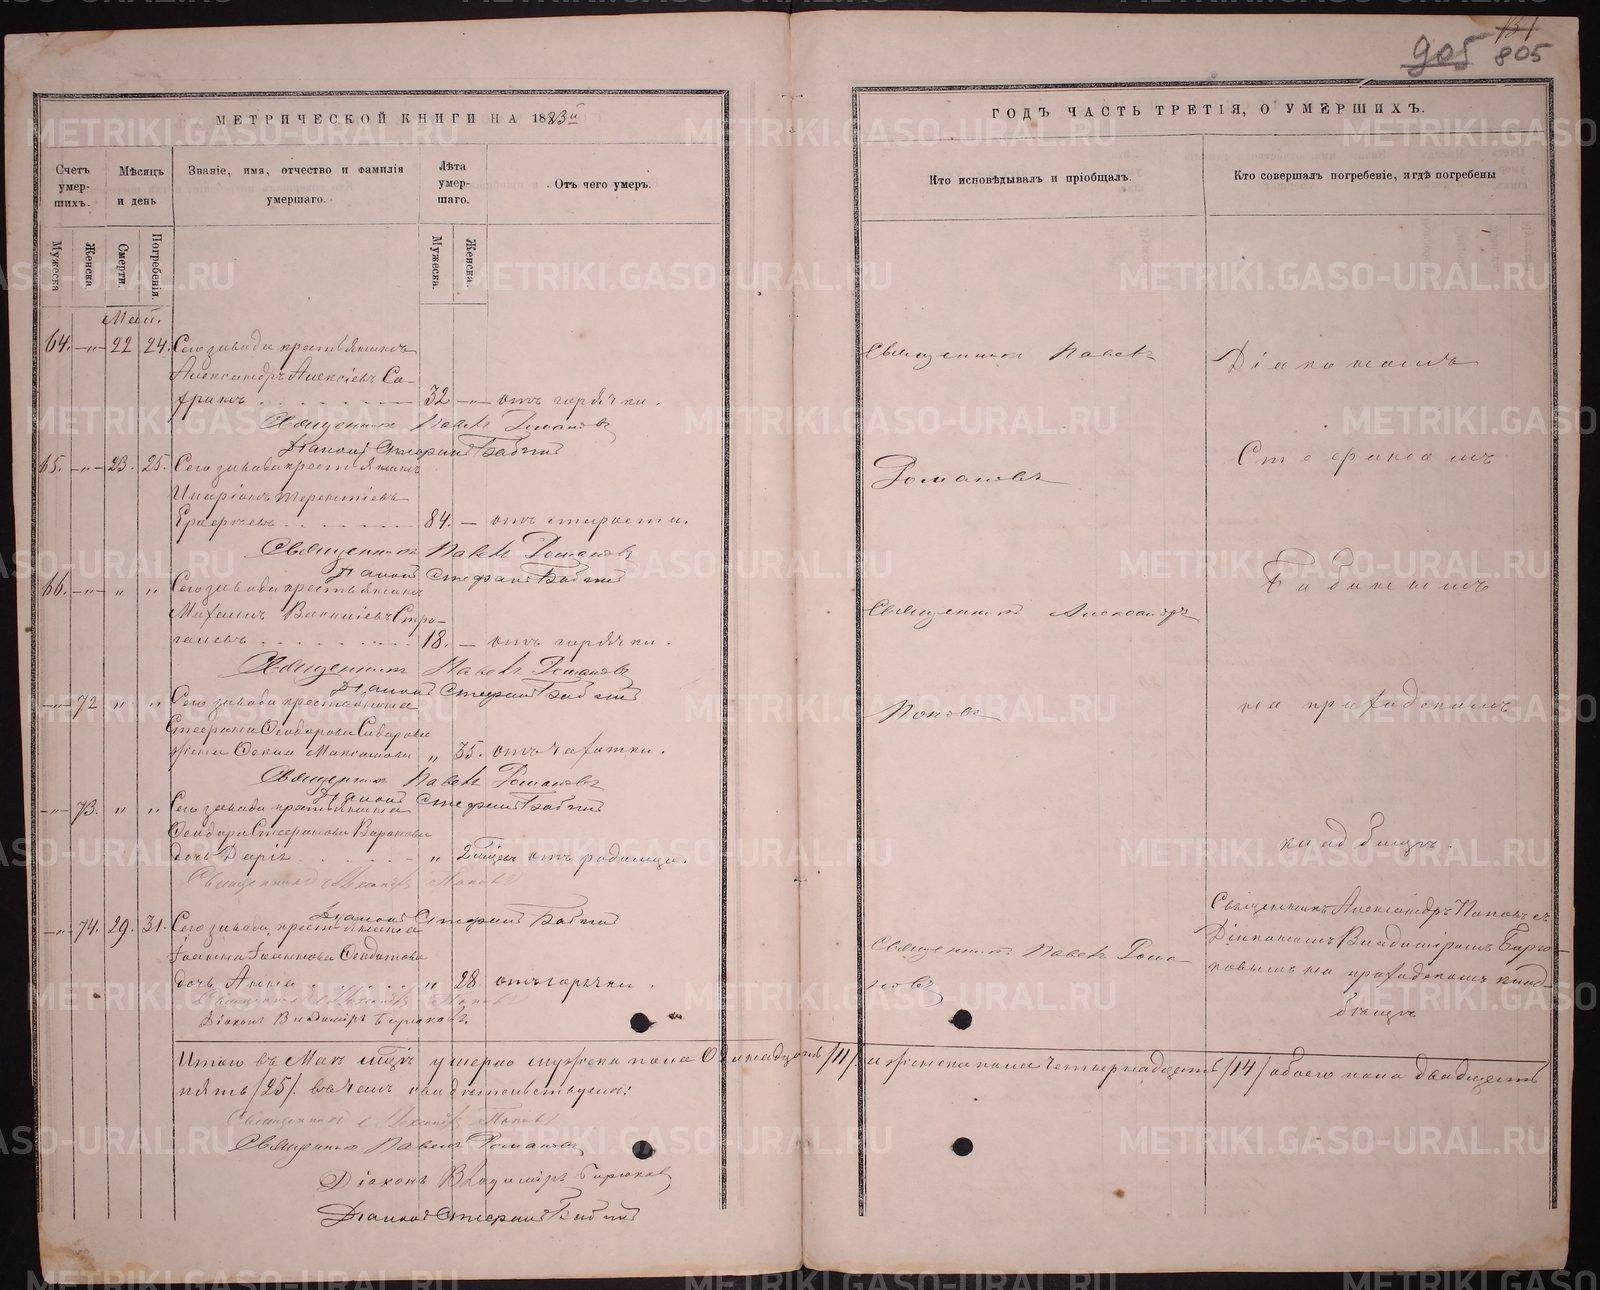 131
905 805
МЕТРИЧЕСКОЙ КНИГИ НА 1883й
Счетъ умер-шихъ.
Мѣсяцъ и день
Званіе, имя, отчество и фамилія умершаго.
Лѣта умер-шаго.
Отъ чего умеръ.
Мужеска.
Женска.
Смерти.
Погребенія.
Мужеска.
Женска.
Май.
64. —„— 22 24. Сего завода крестьянинъ
Александръ Алексѣевъ Са-
32 —„— отъ горячки.
Священникъ Павелъ Романовъ
Діаконъ Стефанъ Бабинъ
65. —„— 23. 25. Сего завода крестьянинъ
Иларіонъ Терентіевъ
84. — отъ старости.
Священникъ Павелъ Романовъ
Діаконъ Стефанъ Бабинъ
66. —„— „ „ Сего завода крестьянинъ
18. — отъ горячки.
Священникъ Павелъ Романовъ
Діаконъ Стефанъ Бабинъ
—„— 72 „ „ Сего завода крестьянина
Стефана Ѳеодорова
жена Ѳекла Максимова „ 35. отъ чахотки.
Священникъ Павелъ Романовъ
Діаконъ Стефанъ Бабинъ
—„— 73. „ „ Сего завода крестьянина
Ѳеодора Стефанова
дочь Дарія „ 2 мѣсяц. отъ родимца.
Священникъ Александръ Поповъ
Діаконъ Стефанъ Бабинъ
—„— 74. 29. 31. Сего завода крестьянина
дочь Анна „ 28 отъ горячки.
Священникъ Александръ Поповъ
Діаконъ Владиміръ Бирюковъ.
Итого въ Маѣ мѣсяцѣ умерло мужеска пола Одиннадцать /11/ и женска пола Четырнадцать /14/ обоего пола двадцать
пять /25/. въ чемъ свидѣтельствуемъ:
Священникъ Александръ Поповъ
Священникъ Павелъ Романовъ
Діаконъ Владиміръ Бирюковъ
Діаконъ Стефанъ Бабинъ
ГОДЪ ЧАСТЬ ТРЕТІЯ, О УМЕРШИХЪ.
Кто исповѣдывалъ и пріобщалъ.
Кто совершалъ погребеніе, и гдѣ погребены
Священникъ Павелъ
Романовъ
Священникъ Александръ
Поповъ
Священникъ Павелъ Рома-
новъ
Діакономъ
Стефаномъ
Бабинымъ
на приходскомъ
кладбищѣ.
Священникъ Александръ Поповъ съ
Діакономъ Владиміромъ Бирю-
ковымъ на приходскомъ клад-
бищѣ
METRIKI.GASO-URAL.RU